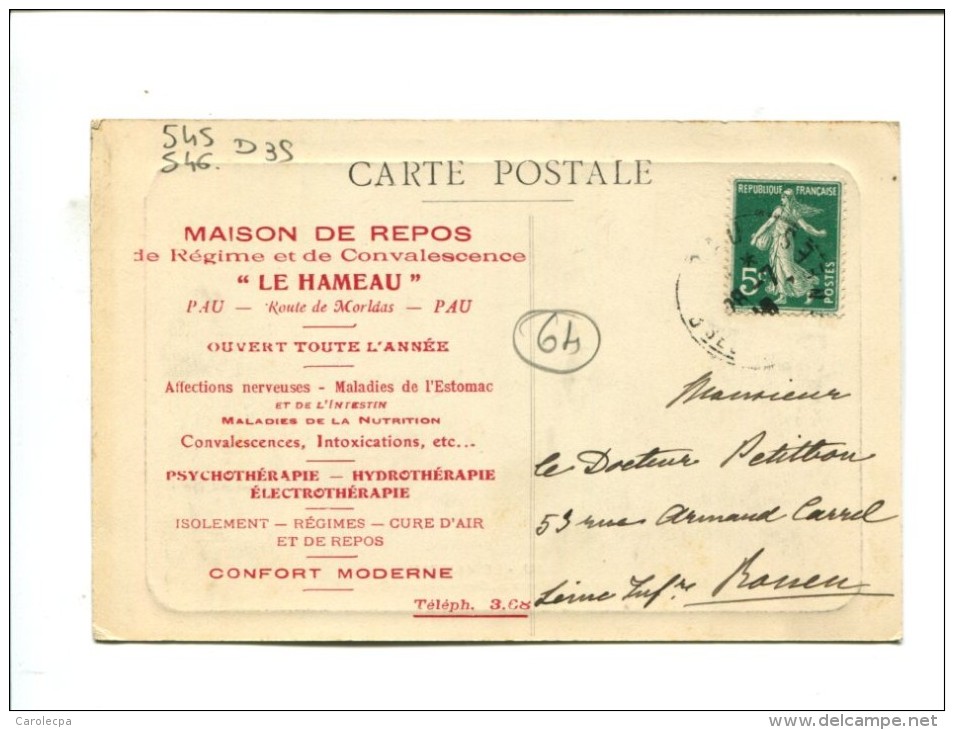 545 D35
546.
CARTE POSTALE
MAISON DE REPOS
de Régime et de Convalescence
“ LE HAMEAU ”
PAU — Route de Morlaas — PAU
OUVERT TOUTE L'ANNÉE
Affections nerveuses - Maladies de l'Estomac
ET DE L'INTESTIN
MALADIES DE LA NUTRITION
Convalescences, Intoxications, etc...
PSYCHOTHÉRAPIE — HYDROTHÉRAPIE
ÉLECTROTHÉRAPIE
ISOLEMENT — RÉGIMES — CURE D'AIR
ET DE REPOS
CONFORT MODERNE
Téléph. 3.68
64
REPUBLIQUE FRANÇAISE
5c
POSTES
Monsieur
le Docteur Petitbon
53 rue Armand Carrel
Seine Infre Rouen
Carolecpa
www.delcampe.net